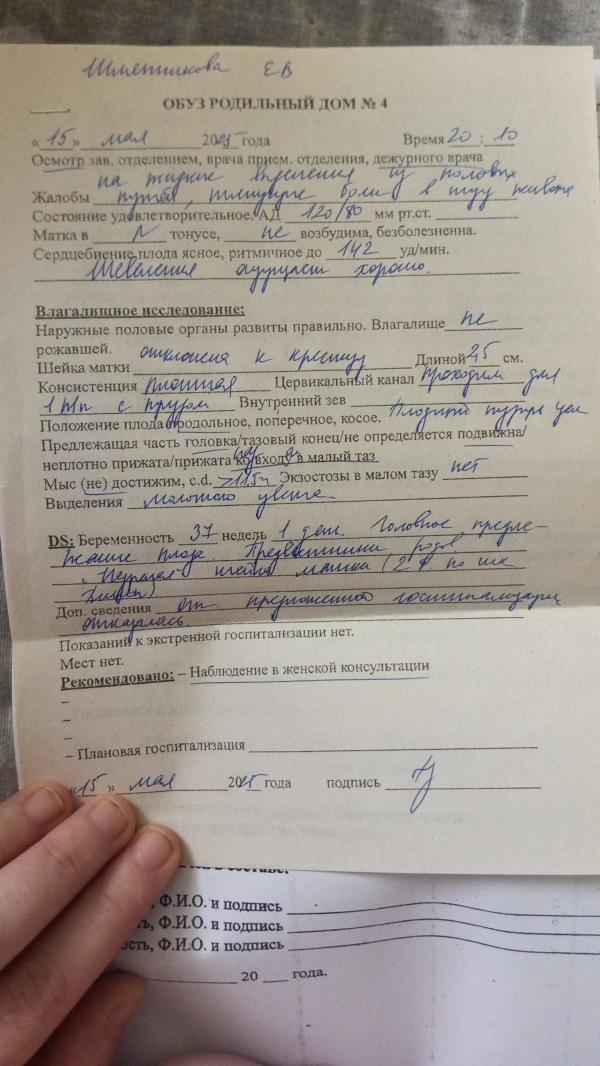 Шметникова ЕВ
ОБУЗ РОДИЛЬНЫЙ ДОМ № 4
« 15 » мая 2025 года Время 20 : 10
Осмотр зав. отделением, врача прием. отделения, дежурного врача
на жидкие выделения из половых
Жалобы путей, тянущие боли в низу живота
Состояние удовлетворительное. АД 120/80 мм рт.ст.
Матка в N тонусе, не возбудима, безболезненна.
Сердцебиение плода ясное, ритмичное до 142 уд/мин.
Шевеления ощущает хорошо.
Влагалищное исследование:
Наружные половые органы развиты правильно. Влагалище не
рожавшей.
Шейка матки отклонена к крестцу Длиной 2,5 см.
Консистенция плотная Цервикальный канал проходим для
1 п/п с трудом Внутренний зев
Положение плода продольное, поперечное, косое. Плодный пузырь цел
Предлежащая часть головка/тазовый конец/не определяется подвижна/
неплотно прижата/прижата ко входу в малый таз
Мыс (не) достижим, c.d. >11,5 Экзостозы в малом тазу нет
Выделения молочного цвета
DS: Беременность 37 недель 1 день. Головное предле-
жание плода. Предвестники родов.
"Незрелая" шейка матки (2 б. по шк
Бишоп).
Доп. сведения от предложенной госпитализации
отказалась.
Показаний к экстренной госпитализации нет.
Мест нет.
Рекомендовано: – Наблюдение в женской консультации
–
–
–
– Плановая госпитализация
« 15 » мая 2025 года подпись
, Ф.И.О. и подпись
ть, Ф.И.О. и подпись
ность, Ф.И.О. и подпись
20 года.